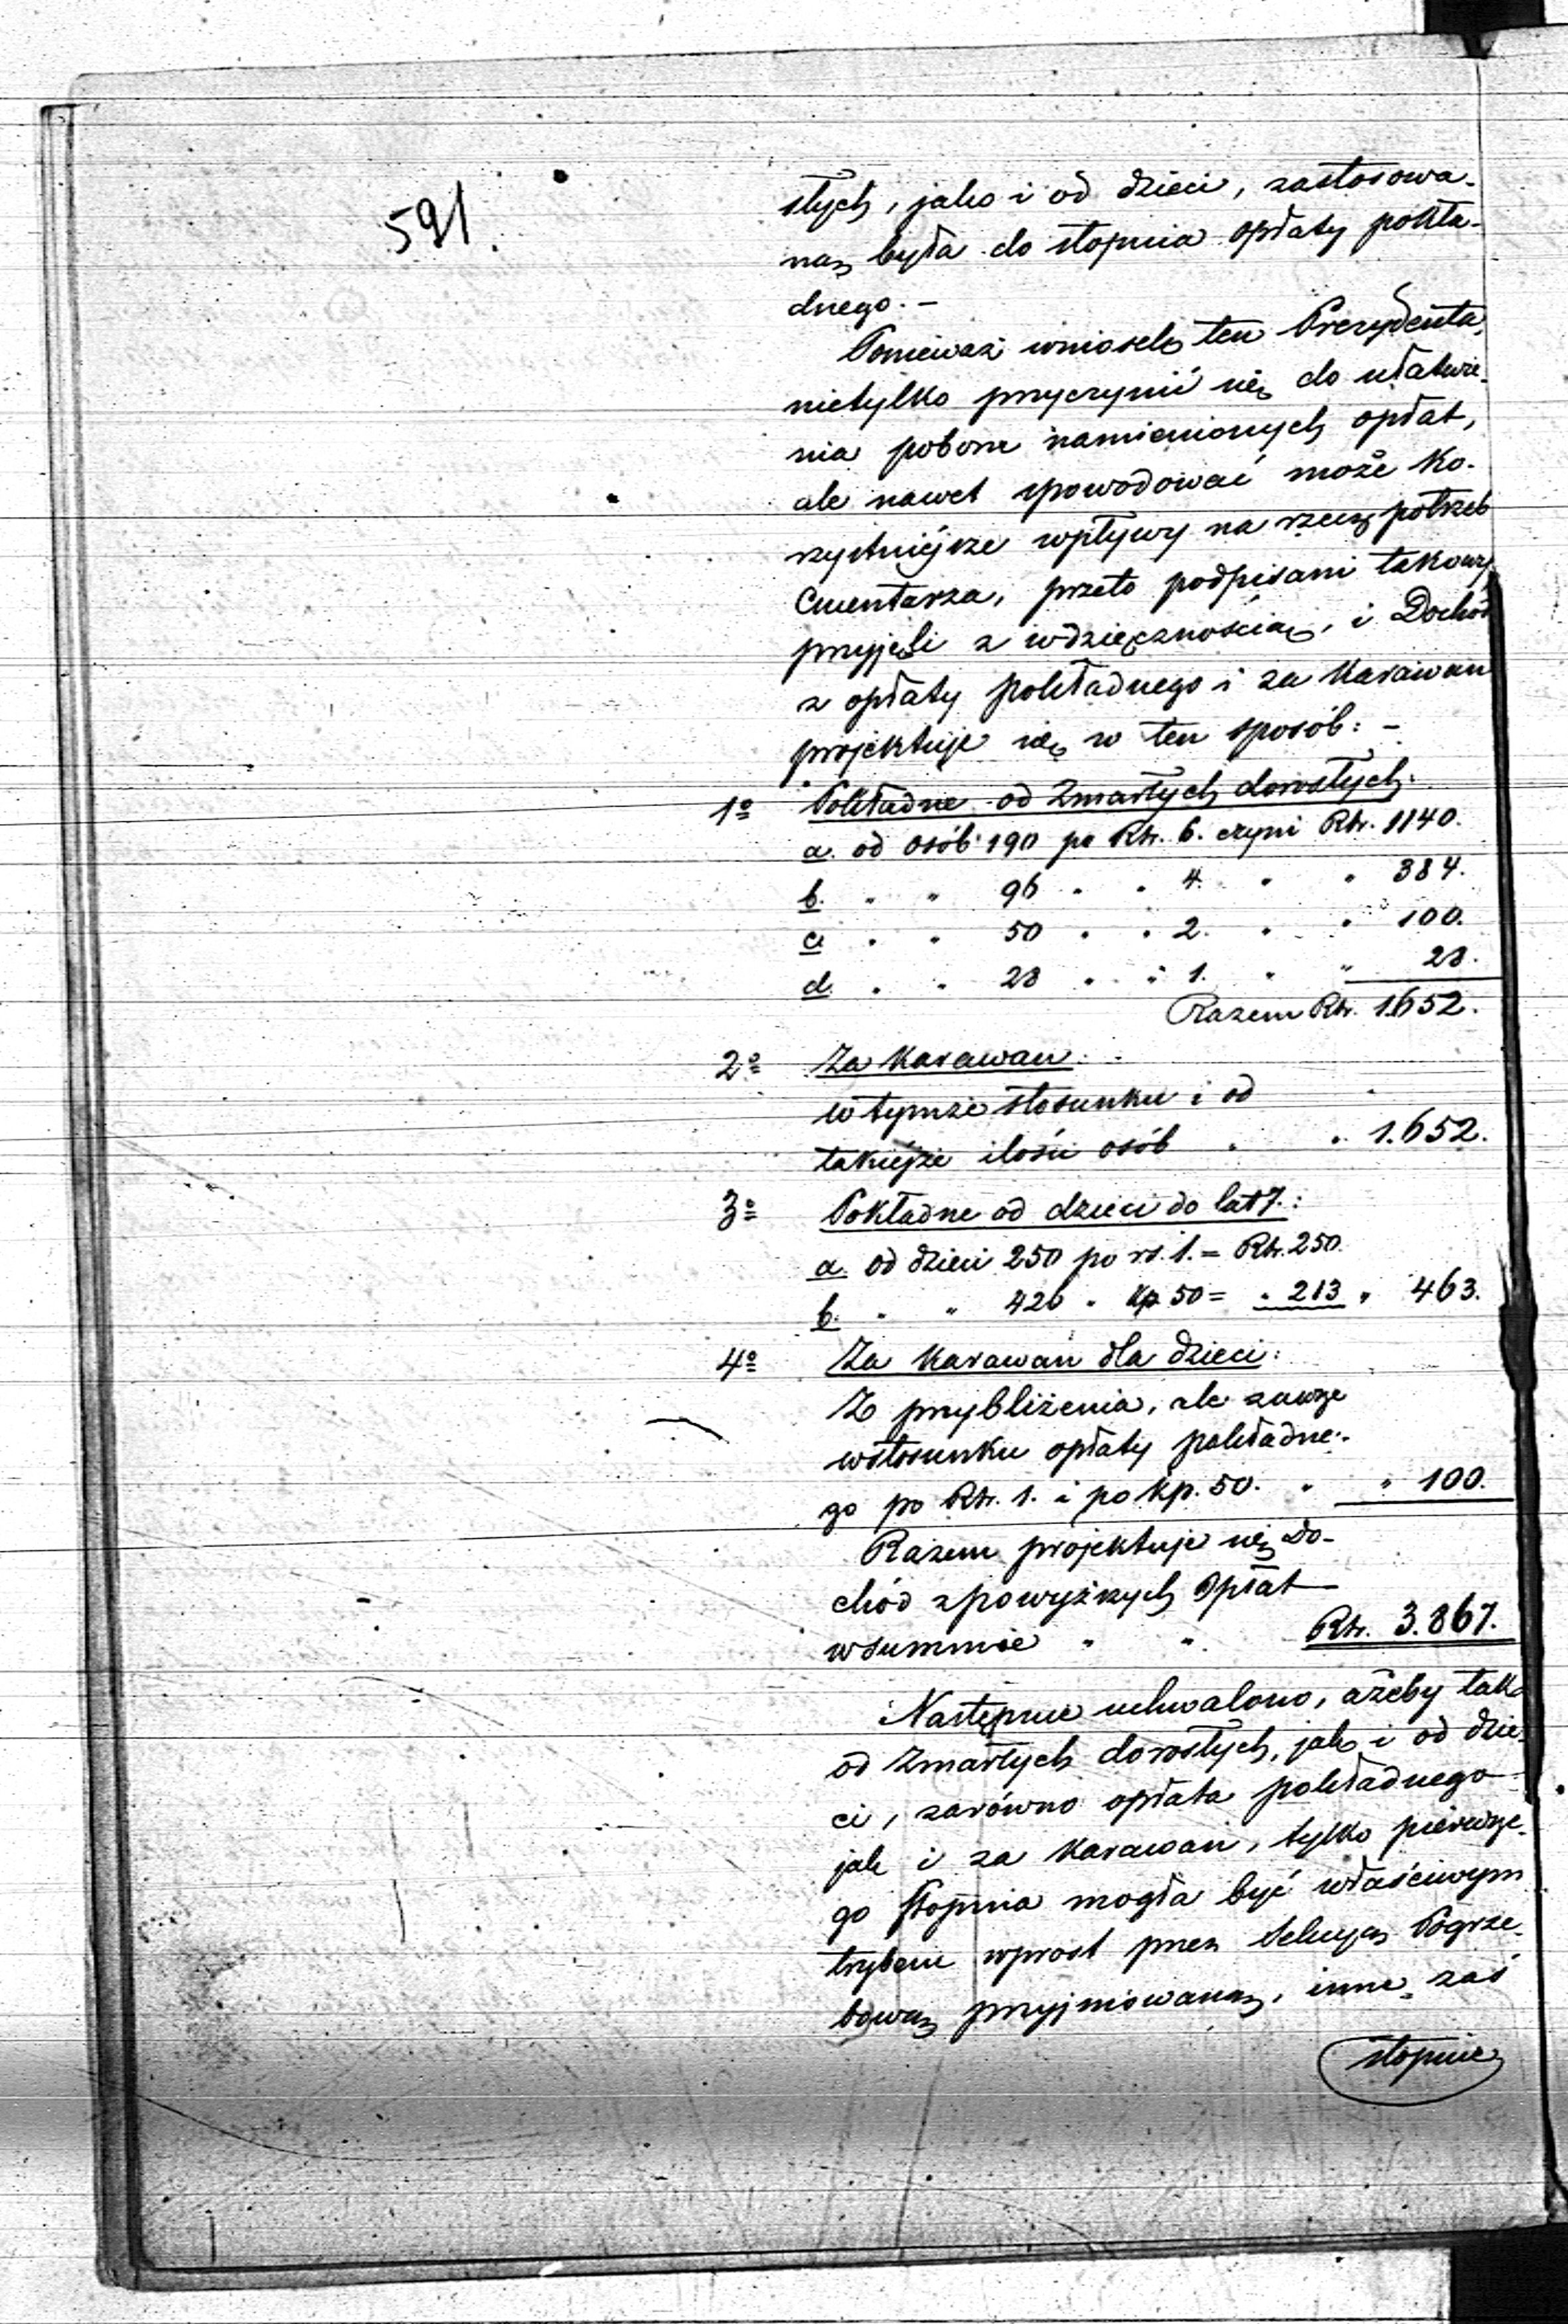 591.
słych, jako i od dzieci, zastosowa-
ną była do stopnia opłaty pokła-
dnego. –
Ponieważ wniosek ten Prezydenta,
nietylko przyczynić się do ułatwie-
nia poboru namienionych opłat,
ale nawet spowodować może ko-
rzystniéjsze wpływy na rzecz potrzeb
Cmentarza, przeto podpisani takowy
przyjęli z wdzięcznością, i Dochód
z opłaty pokładnego i za Karawan
projektuje się w ten sposób: –
1o Pokładne od Zmarłych dorosłych:
a. od osób 190 po Rsr. 6. czyni Rsr. 1140.
b. " " 96 " " 4. " " 384.
c. " " 50 " " 2. " " 100.
d. " " 28 " " 1. " " 28.
Razem Rsr. 1652.
2o Za Karawan:
w tymże stosunku i od
takiéjże ilości osób " " 1.652.
3o Pokładne od dzieci do lat 7.:
a. od dzieci 250 po rs. 1. = Rsr. 250.
b. " " 426 " kp 50 = " 213 " 463.
4o Za Karawan dla dzieci:
Z przybliżenia, ale zawsze
w stosunku opłaty pokładne-
go po Rsr. 1. i po kp. 50. " " 100.
Razem projektuje się Do-
chód z powyższych Opłat
w summie " " Rsr. 3.867.
Następnie uchwalono, ażeby tak
od Zmarłych dorosłych, jak i od dzie-
ci, zarówno opłata pokładnego
jak i za Karawan, tylko pierwsze-
go stopnia mogła być właściwym
trybem wprost przez Sekcyą Pogrze-
bową przyjmowaną, inne zaś
stopnie